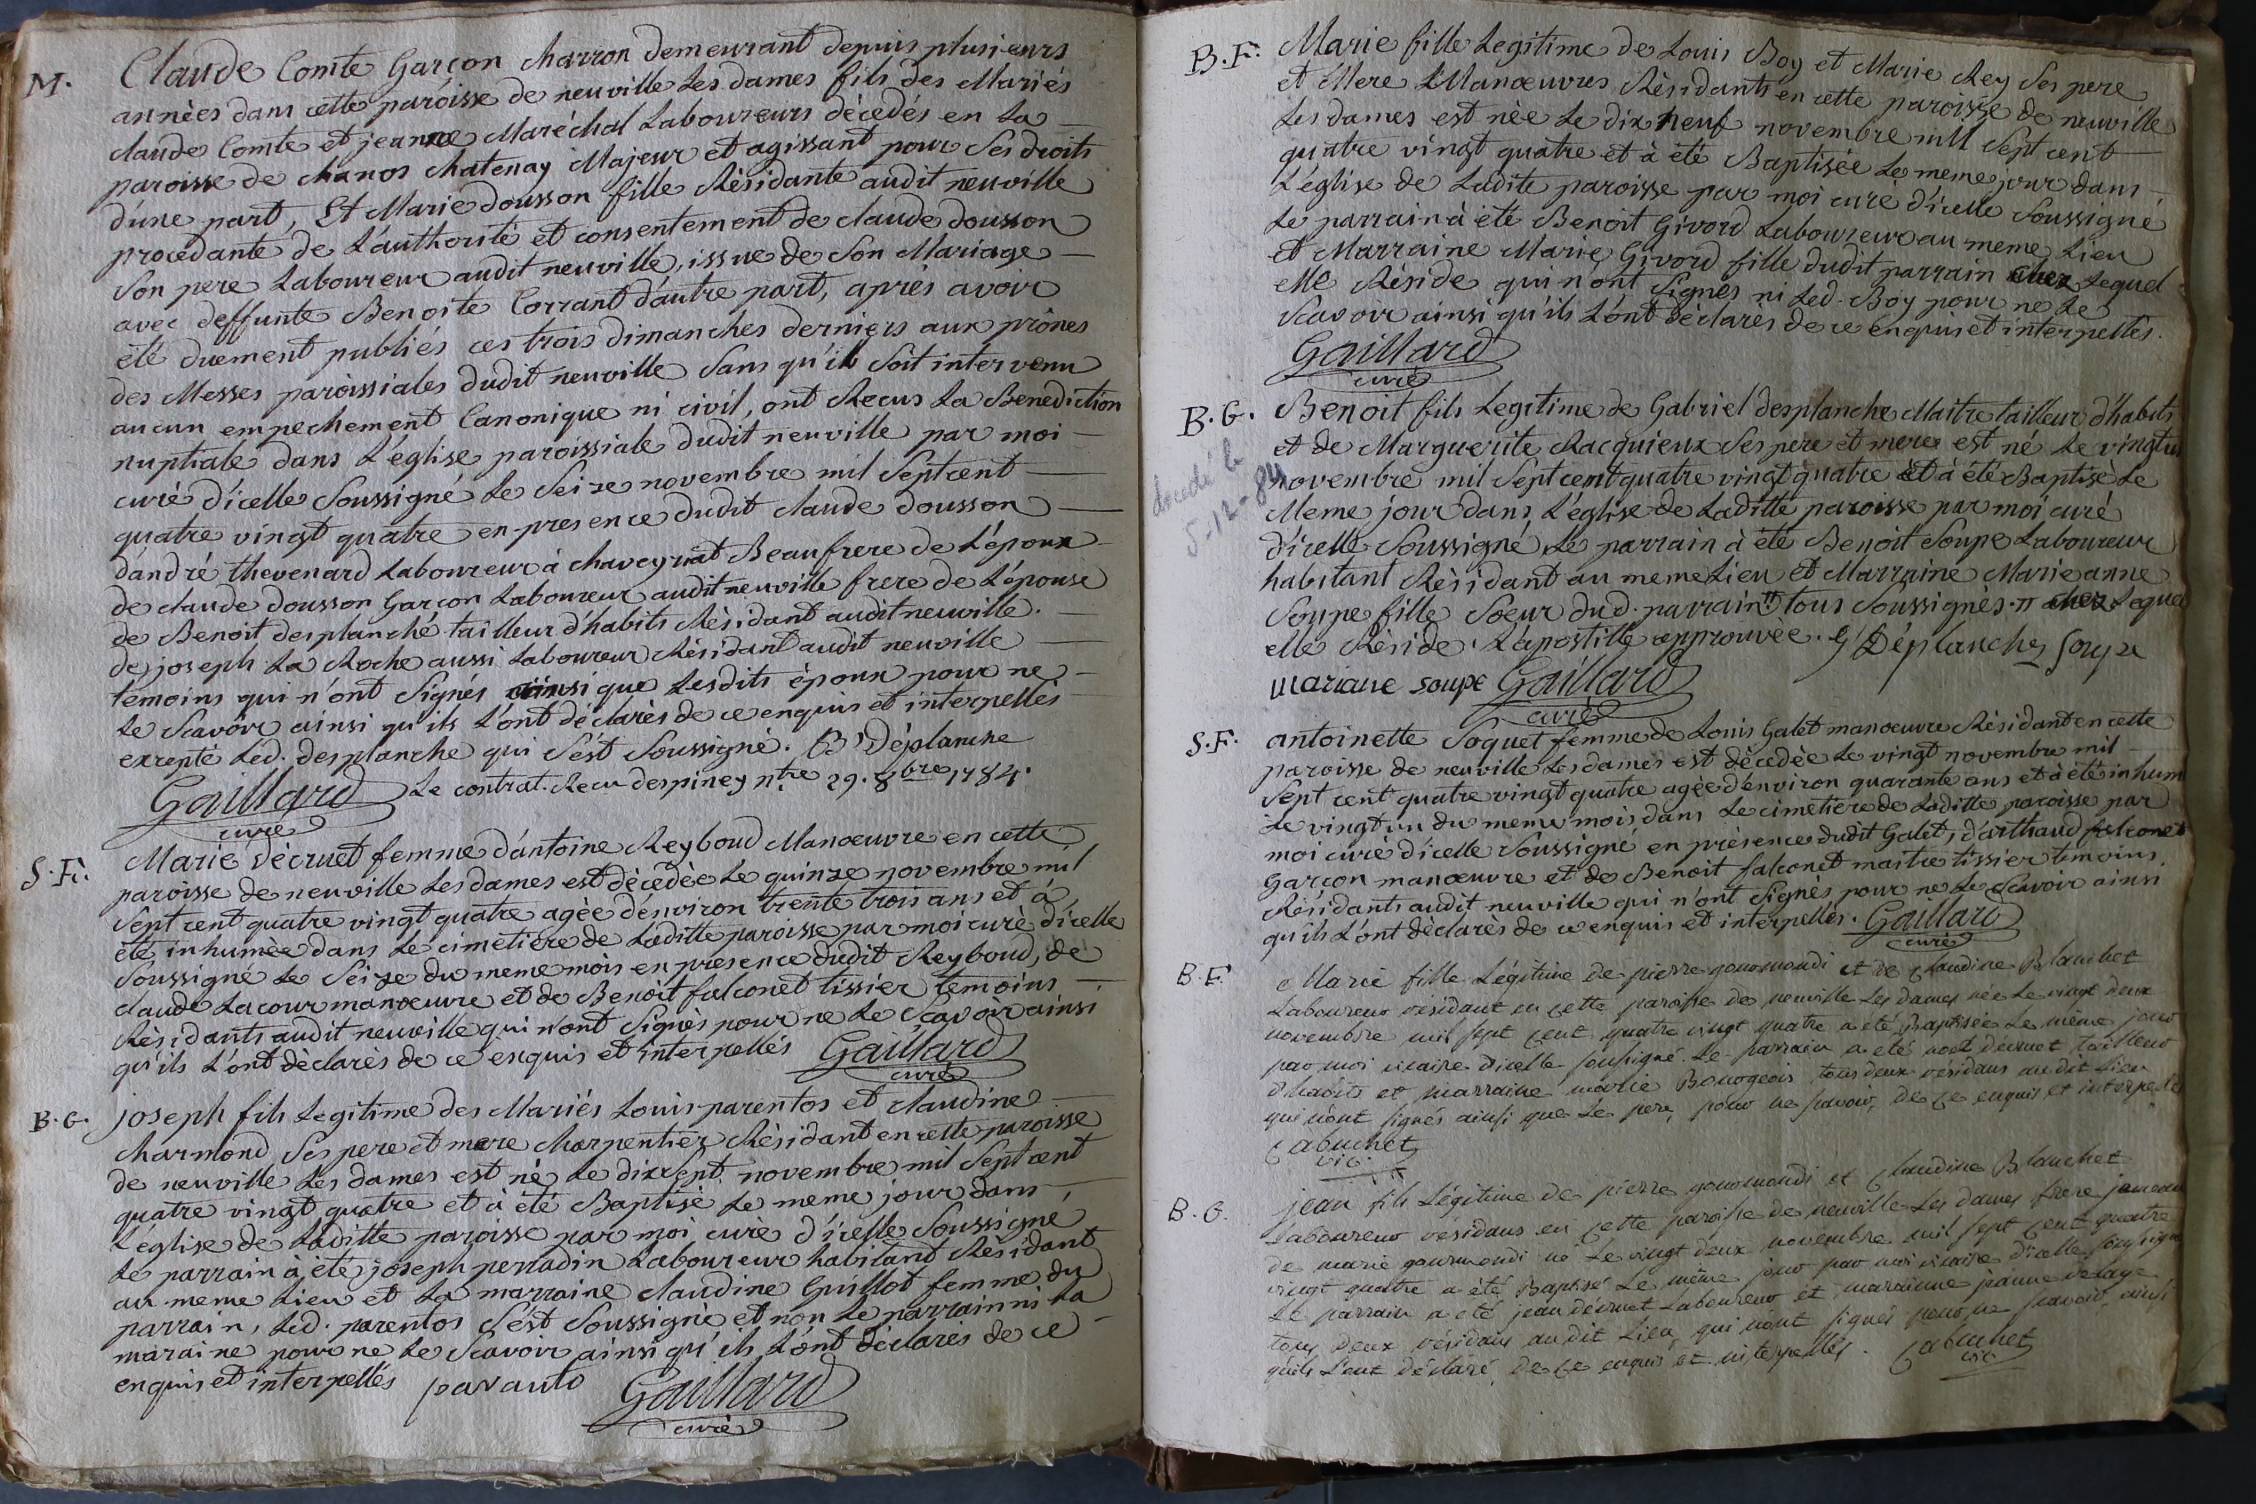 M. Claude Comte Garçon charron demeurant depuis plusieurs
annèes dans cette paroisse de neuville Les dames fils des Mariés
claude Comte et jeanne Maréchal Laboureurs dècedés en La
paroisse de chanos chatenay Majeur et agissant pour Ses droits
d'une part, Et Marie dousson fille Rèsidante audit neuville
procedante de L'authorité et consentement de claude dousson
Son pere Laboureur audit neuville, issue de Son Mariage
avec deffunte Benoite Corrant d'autre part, aprés avoir
été duement publiés ces trois dimanches derniers aux prônes
des Messes paroissiales dudit neuville Sans qu'il Soit intervenu
aucun empechement Canonique ni civil, ont Recus La Benediction
nuptiale dans L'église paroissiale dudit neuville par moi
curè d'icelle Soussigné Le Seize novembre mil Septcent
quatre vingt quatre en presence dudit claude dousson
d'andré thevenard Laboureur à chaveyriat Beaufrere de L'époux
de claude dousson Garçon Laboureur audit neuville frere de L'épouse
de Benoit desplanche tailleur d'habits Rèsidant audit neuville.
de joseph La Roche aussi Laboureur Rèsidant audit neuville
temoins qui n'ont Signés ainsi que Lesdits époux pour ne
Le Scavoir ainsi qu'ils L'ont déclarès de ce enquis et interpellés
excepté Led. desplanche qui S'est Soussigné. B Déplanche
Gaillard curé Le contrat Recu despiney ntre 29. 8bre 1784.
S.F. Marie dècruet femme d'antoine Reyboud Manoeuvre en cette
paroisse de neuville Les dames est dècedèe Le quinze novembre mil
Sept cent quatre vingt quatre agèe d'environ trente trois ans et à
été inhumèe dans Le cimetiere de Laditte paroisse par moi curè d'icelle
Soussigné Le Seize du meme mois en presence dudit Reyboud, de
claude Lacour manoeuvre et de Benoit falconet tissier temoins
Rèsidants audit neuville qui n'ont Signès pour ne Le Scavoir ainsi
qu'ils L'ont dèclarès de ce enquis et interpellés Gaillard
curè
B.G. joseph fils Legitime des Mariés Louis parentos et claudine
charmond Ses pere et mere charpentier Rèsidant en cette paroisse
de neuville Les dames est né Le dix Sept novembre mil Septcent
quatre vingt quatre et à été Baptisè Le meme jour dans
L'eglise de Laditte paroisse par moi curè d'icelle Soussigné
Le parrain à été joseph perradin Laboureur habitant Rèsidant
au meme Lieu et La marraine claudine Guillot femme du
parrain, Led. parentos S'ést Soussignè et non Le parrain ni La
maraine pour ne Le Scavoir ainsi qu'ils L'ont déclarès de ce
enquis et interpellés paranto Gaillard
curè
B.F. Marie fille Legitime de Louis Boy et Marie Rey Ses pere
et Mere Manoeuvres Rèsidants en cette paroisse de neuville
Les dames est nèe Le dix neuf novembre mil Sept cent
quatre vingt quatre et à été Baptisèe Le meme jour dans
L'église de Ladite paroisse par moi curè d'icelle Soussigné
Le parrain à été Benoit Givord Laboureur au meme Lieu
et Marraine Marie Givord fille dudit parrain chez Lequel
elle Rèside qui n'ont Signés ni Led. Boy pour ne Le
Scavoir ainsi qu'ils L'ont dèclarès de ce enquis et interpellés.
Gaillard
curè
B.G. Benoit fils Legitime de Gabriel desplanche Maitre tailleur d'habits
et de Marguerite Racquieux Ses pere et mere est né Le vingt un
novembre mil Sept cent quatre vingt quatre et à été Baptisé Le
Meme jour dans L'église de Laditte paroisse par moi curè
décédé le
5-12-84
d'icelle Soussigné Le parrain à été Benoit Soupe Laboureur
habitant Rèsidant au meme Lieu et Marraine Marie anne
Soupe fille Soeur dud. parrain # tous Soussignès. # chez Lequel
elle Rèside. L'apostille approuvèe. G Déplanche Soupe
Mariane soupe Gaillard
curè
S.F. antoinette Soquet femme de Louis Galet manoeuvre Rèsidant en cette
paroisse de neuville Les dames est dècedèe Le vingt novembre mil
Sept cent quatre vingt quatre agèe d'environ quarante ans et à été inhum
Le vingt un du meme mois dans Le cimetiere de Laditte paroisse par
moi curè d'icelle Soussigné en présence dudit Galet, d'arthaud falconet
Garçon manoeuvre et de Benoit falconet maitre tissier temoins
Rèsidants audit neuville qui n'ont Signès pour ne Le Scavoir ainsi
qu'ils L'ont dèclarès de ce enquis et interpellés. Gaillard
curè
B.F. Marie fille Légitime de pierre gourmondi et de Claudine Blanchet
Laboureur résidant en cette paroisse de neuville Les dames née Le vingt deux
novembre mil sept cent quatre vingt quatre a été Baptisée Le même jour
par moi vicaire d'icelle soussigné. Le parrain a été décruet tailleur
d'habits et marraine Bourgeois tous deux residans audit Lieu
qui n'ont signés ainsi que Le pere, pour ne savoir, de ce enquis et interpellé
Cabuchet
vic.
B.G. jean fils Légitime de pierre gourmondi et Claudine Blanchet
Laboureur résidans en cette paroisse de neuville Les dames frere jumeau
de marie gourmondi né Le vingt deux novembre mil sept cent quatre
vingt quatre a été Baptisé Le même jour par moi vicaire d'icelle soussigné
Le parrain a été jean décruet Laboureur et marraine jeanne delaye
tous deux résidans audit Lieu, qui n'ont signés pour ne scavoir ainsi
qu'ils L'ont déclaré, de ce enquis et interpellés. Cabuchet
vic.